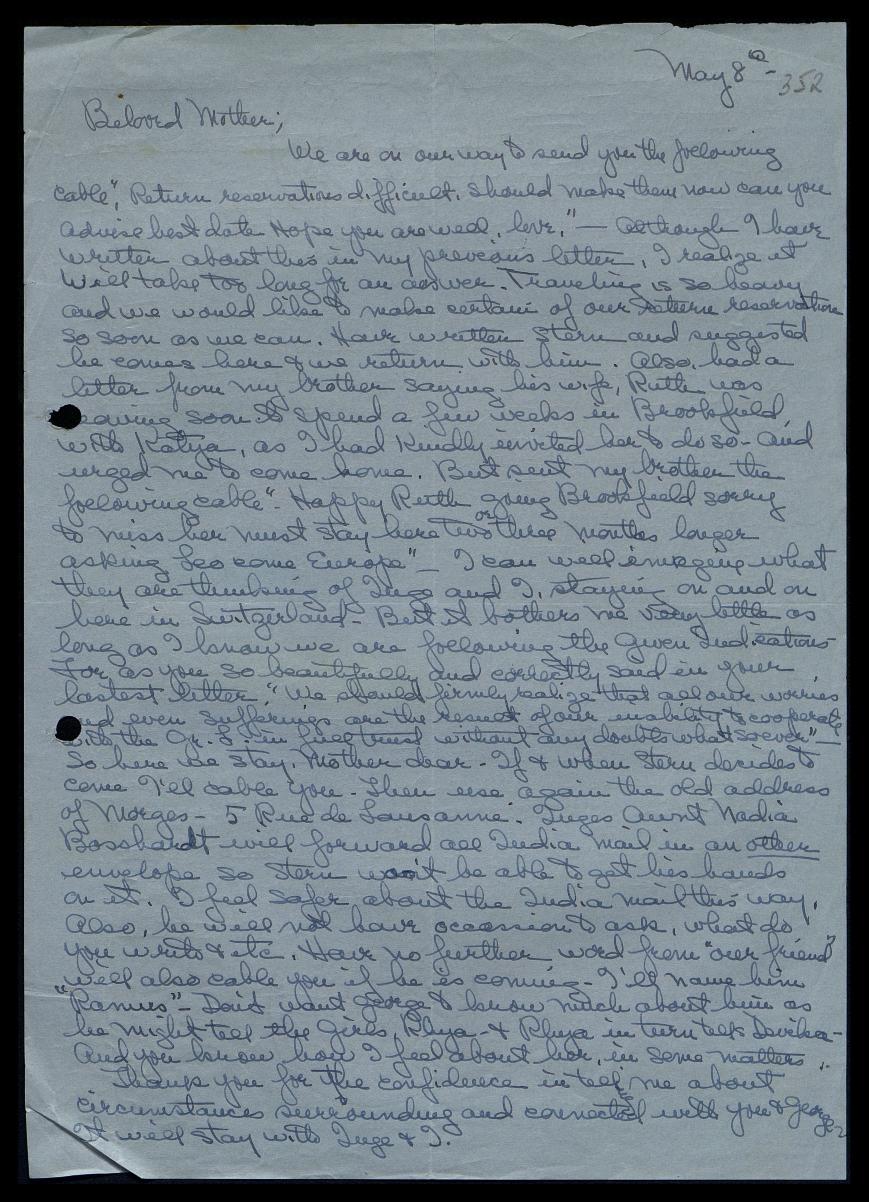 May 8th - 352
Beloved Mother;
We are on our way to send you the following
cable", Return reservations difficult, should make them now can you
advise best date Hope you are well, love." — Although I have
written about this in my previous letter, I realize it
will take too long for an answer. Traveling is so heavy
and we would like to make certain of our return reservation
so soon as we can. Have written Stern and suggested
he comes here & we return with him. Also, had a
letter from my brother saying his wife, Ruth was
leaving soon to spend a few weeks in Brookfield
with Katya, as I had kindly invited her to do so - and
urged me to come home. But sent my brother the
following cable". Happy Ruth going Brookfield sorry
to miss her must stay here two or three months longer
asking Leo come Europe" — I can well imagine what
they are thinking of Inge and I, staying on and on
here in Switzerland - But it bothers me very little as
long as I know we are following the given Indications
For, as you so beautifully and correctly said in your
lastest letter, "We should firmly realize that all our worries
and even sufferings are the result of our inability to cooperate
with the Gr. L. in full trust without any doubts whatsoever" —
So here we stay, Mother dear - If & when Stern decides to
come I'll cable you - Then use again the old address
of Morges - 5 Rue de Lausanne. Inges Aunt Nadia
Bosshardt will forward all India mail in an other
envelope so Stern won't be able to get his hands
on it. I feel safer about the India mail this way.
Also, he will not have occassion to ask, what do
you write & etc. Have no further word from "our friend"
will also cable you if he is coming - I'll name him
"Ramus" - Don't want George to know much about him as
he might tell the girls, Rhya - & Rhya in turn tells Devika -
And you know how I feel about her, in some matters.
Thank you for the confidence in tell me about
circumstances surrounding and connected with you & George
It will stay with Inge & I.